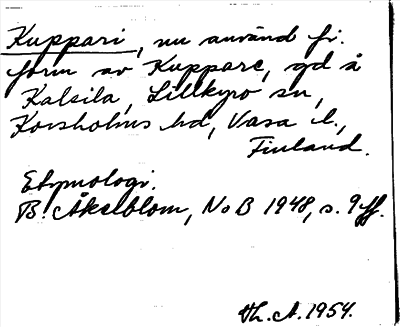 Kuppari, nu använd fi.
form av Kuppare, gd å
Kalsila, Lillkyro sn,
Korsholms hd, Vasa l.,
Finland.
Etymologi.
B. Åkelblom, NoB 1948, s. 9 ff.
Th. A. 1954.